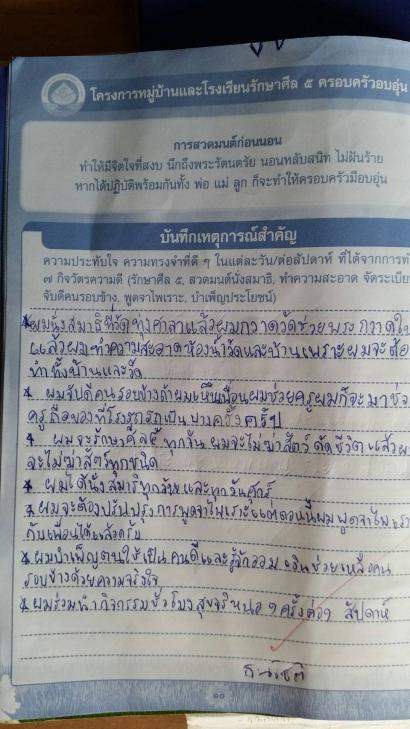 โครงการหมู่บ้านและโรงเรียนรักษาศีล ๕ ครอบครัวอบอุ่น
การสวดมนต์ก่อนนอน
ทำให้มีจิตใจที่สงบ นึกถึงพระรัตนตรัย นอนหลับสนิท ไม่ฝันร้าย
หากได้ปฏิบัติพร้อมกันทั้ง พ่อ แม่ ลูก ก็จะทำให้ครอบครัวมีอบอุ่น
บันทึกเหตุการณ์สำคัญ
ความประทับใจ ความทรงจำที่ดี ๆ ในแต่ละวัน/ต่อสัปดาห์ ที่ได้จากการทำ
๗ กิจวัตรความดี (รักษาศีล ๕, สวดมนต์นั่งสมาธิ, ทำความสะอาด จัดระเบีย
จับดีคนรอบข้าง, พูดจาไพเราะ, บำเพ็ญประโยชน์)
ผมนั่งสมาธิที่วัดทุ่งศาลาแล้วผมกวาดวัดช่วยพระ กวาดใบ
แล้วผมทำความสะอาดห้องน้ำวัดและบ้านเพราะผมจะต้อ
ทำทั้งบ้านและวัด
ผมจับดีคนรอบข้างถ้าผมเห็นเพื่อนผมช่วยครูผมก็จะมาช่ว
ครูถือของที่โรงรถเป็นบางครั้งครับ
ผมจะรักษาศีล5ทุกวันผมจะไม่ฆ่าสัตว์ตัดชีวิตแล้วผ
จะไม่ฆ่าสัตว์ทุกชนิด
ผมได้นั่งสมาธิทุกวันและทุกวันศุกร์
ผมจะต้องปรับปรุงการพูดจาไพเราะแต่ตอนนี้ผมพูดจาไพเรา
กับเพื่อนได้แล้วครับ
ผมบำเพ็ญตนให้เป็นคนดีและรู้จักออมเงินช่วยเหลือคน
รอบข้างด้วยความจริงใจ
ผมร่วมทำกิจกรรมชั่วโมงสุขจริงหนอ 9 ครั้งต่อ1 สัปดาห์
ธนโชติ
๑๐